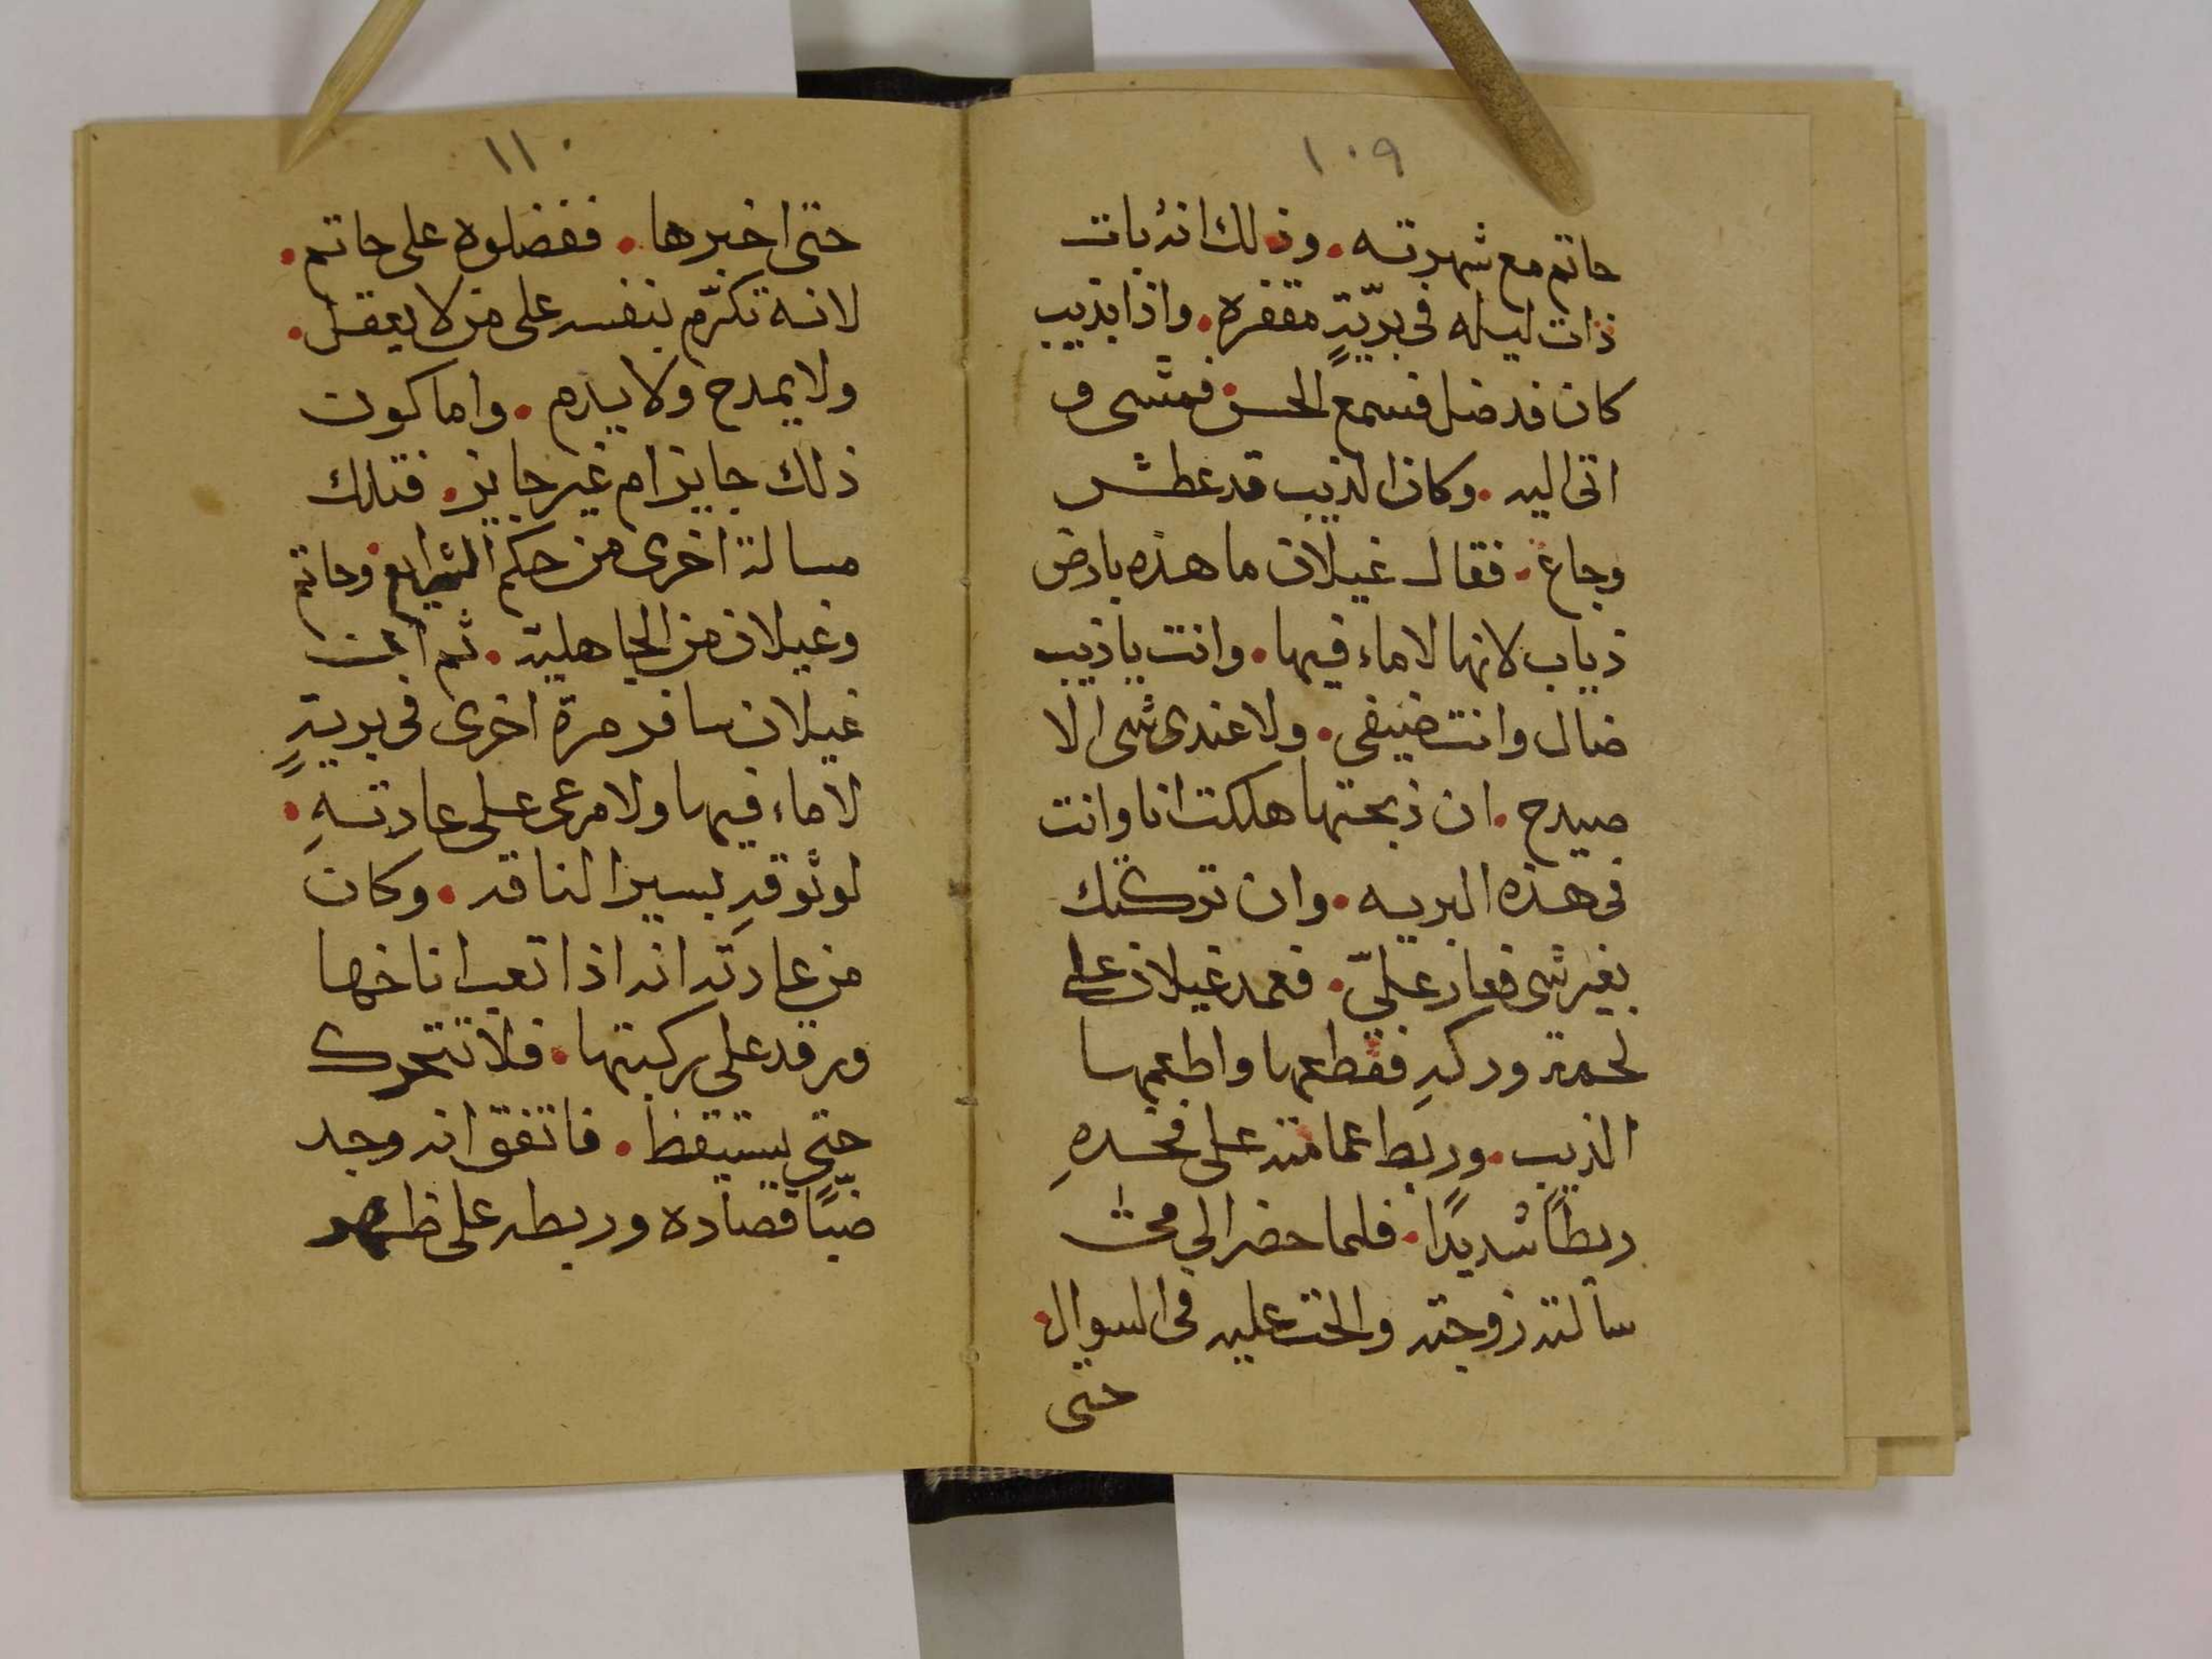 ١٠٩
حاتم مع شهرته . وذلك انه بات
ذات ليله فى بريّةٍ مقفره . واذا بذيب
كان قد ضل فسمع الحس فمشى و
اتى اليه . وكان الذيب قد عطش
وجاع . فقال غيلان ما هذه بارض
ذياب لانها لا ماء فيها . وانت ياذيب
ضال وانت ضيفي . ولا عندى شى الا
صيدح . ان ذبحتها هلكت انا وانت
فى هذه البريه . وان تركتك
بغير شى فعار علىّ . فعمد غيلان على
لحمة وركهِ فقطعها واطعمها
الذيب . وربط عمامته على فخدهِ
ربطًا شديدًا . فلما حضر الى
سألته زوجته والحت عليه فى السوال .
حتى
١١٠
حتى اخبرها . ففضلوه على حاتم .
لانه تكرّم بنفسه على من لا يعقل .
ولا يمدح ولا يذم . واما كون
ذلك جايز ام غير جايز . فتلك
مسالة اخرى من حكم الشرايع وحاتم
وغيلان من الجاهلية . ثم ان
غيلان سافر مرة اخرى فى بريةٍ
لا ماء فيها ولا مرعى على عادتهِ .
لوثوقهِ بسير الناقه . وكان
من عادته انه اذا تعب اناخها
ورقد على ركبتها . فلا تتحرك
حتى يستيقظ . فاتفق انه وجد
ضبًا فصاده وربطه على ظهر